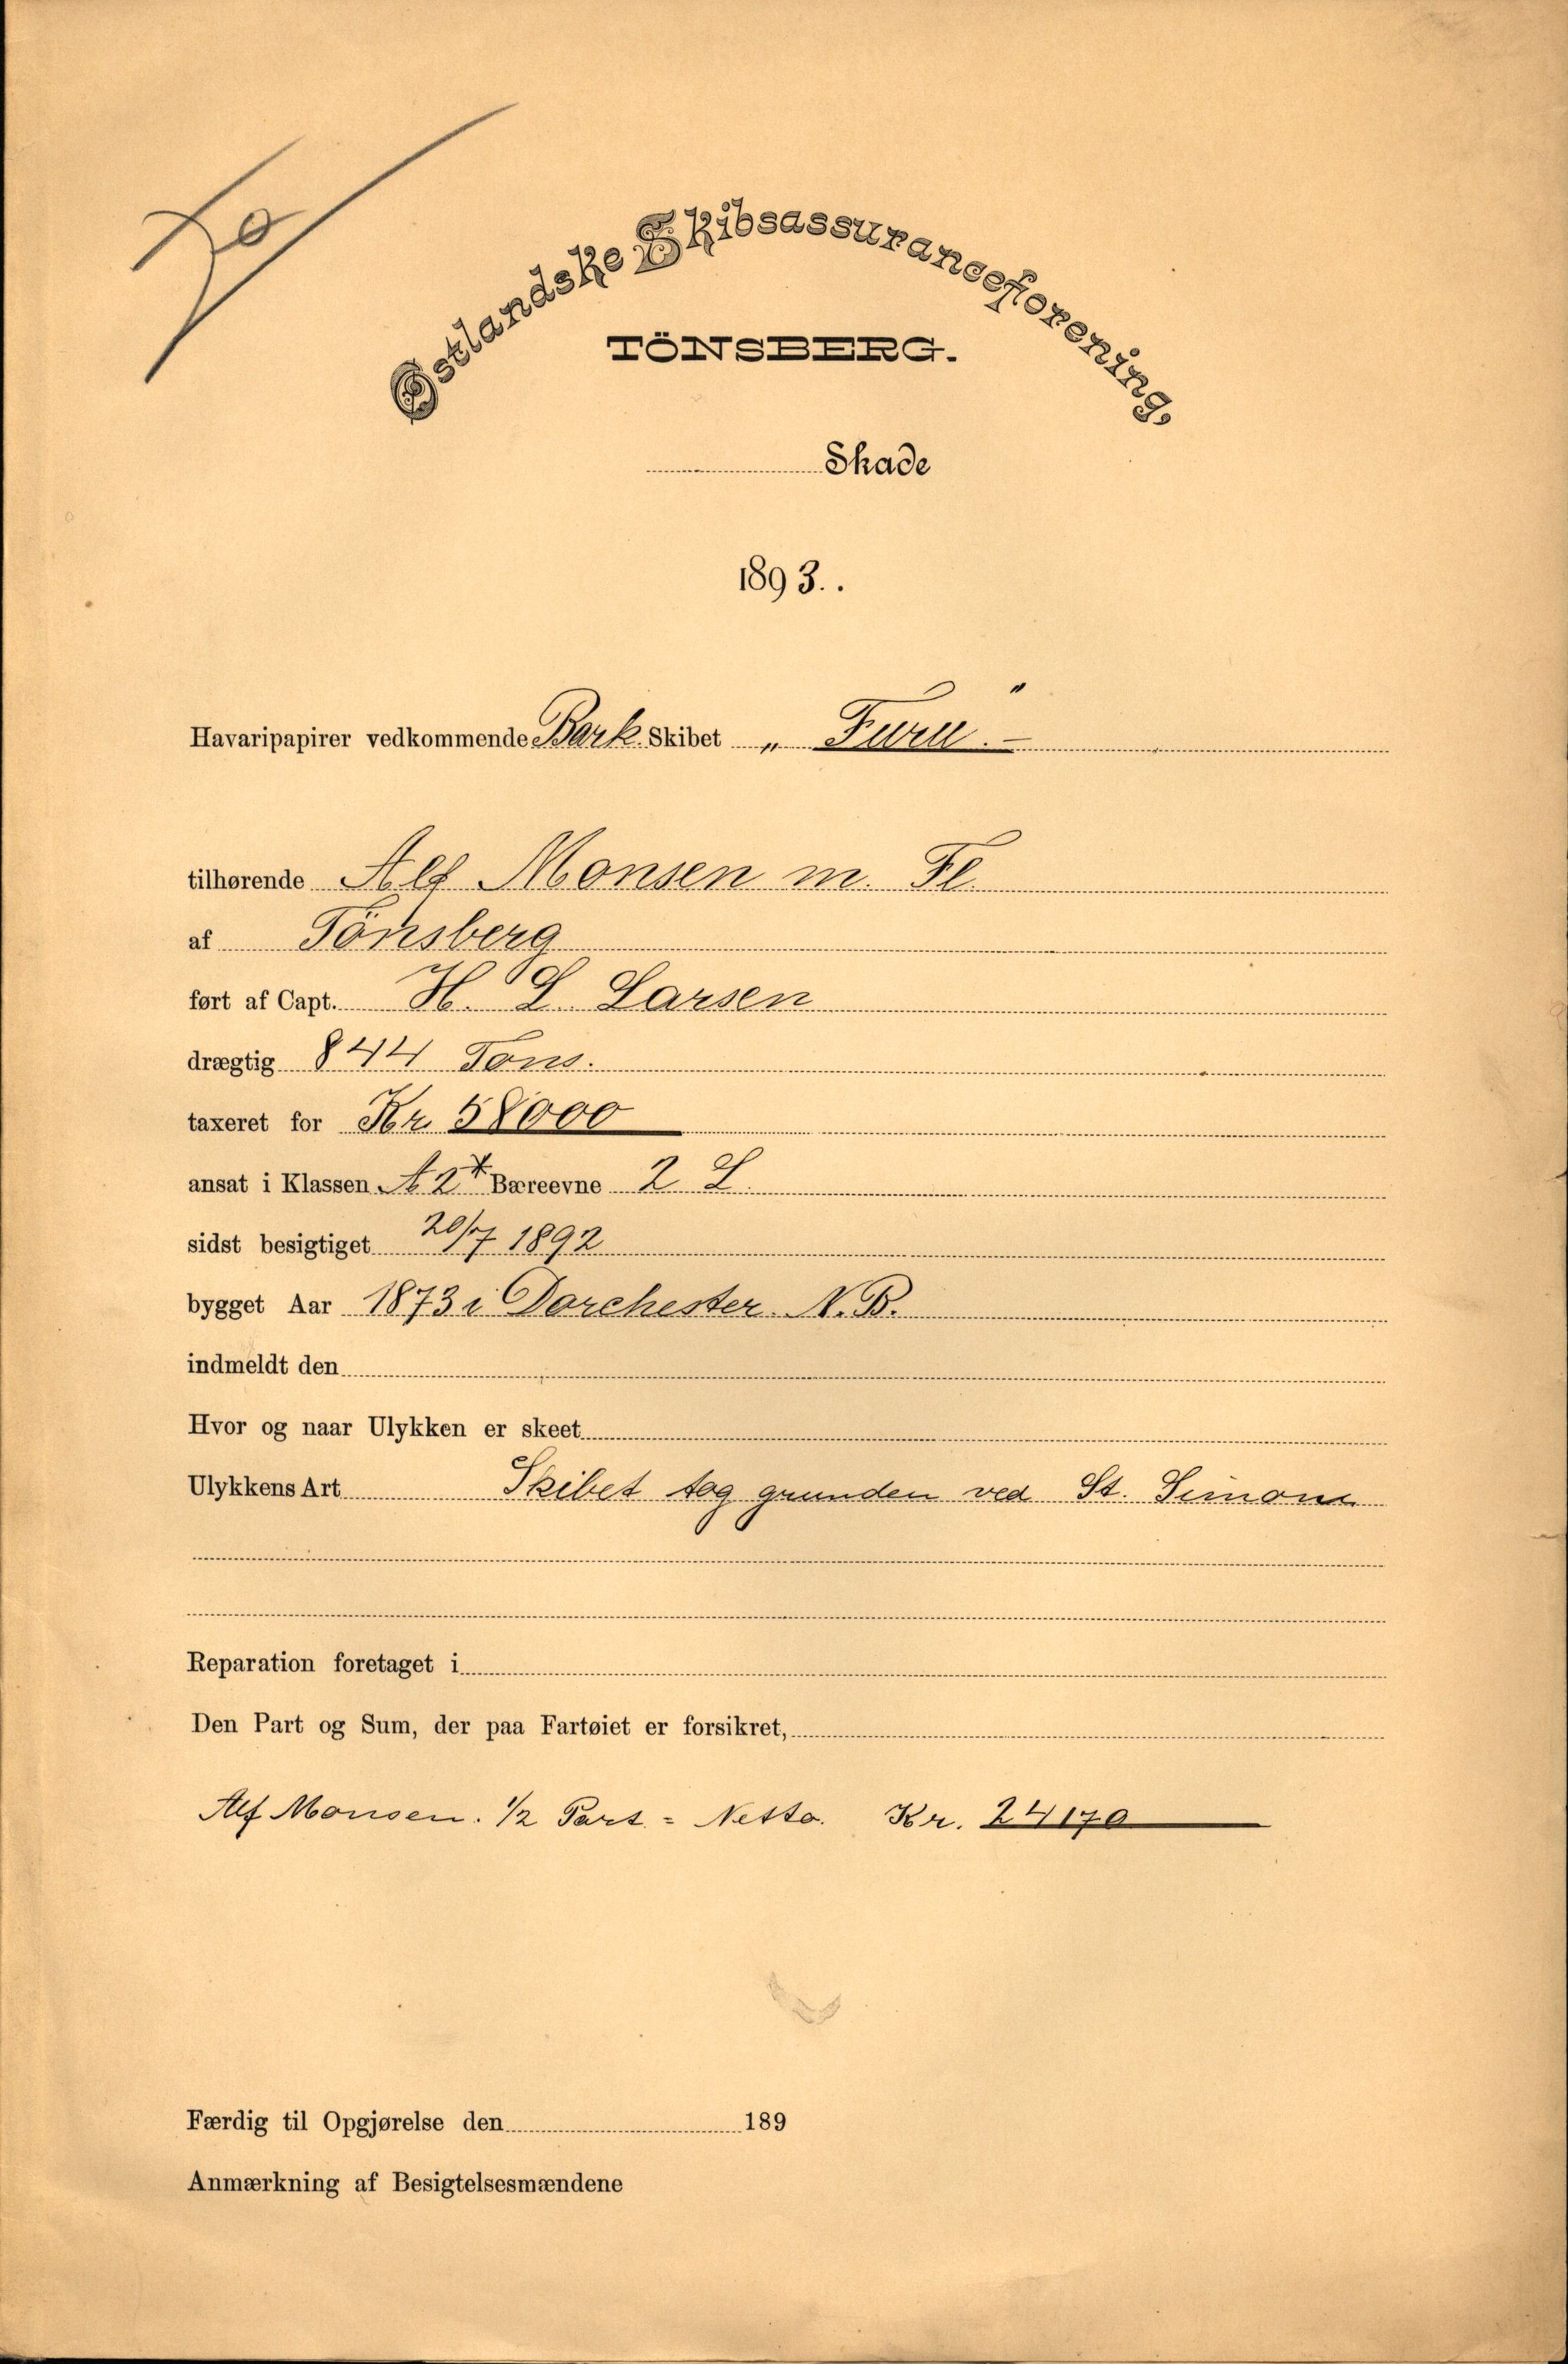 Östlandske Skibsassuranceforening,
TÖNSBERG.
Skade
1893. .
Havaripapirer vedkommende Bark Skibet „ Furu."
tilhørende Alf Monsen m. Fl.
af Tönsberg
ført af Capt. H. L. Larsen
drægtig 844 Tons.
taxeret for Kr. 58000
ansat i Klassen A 2 Bæreevne 2 L.
sidst besigtiget 20/7 1892
bygget Aar 1873 i Dorchester. N. B.
indmeldt den
Hvor og naar Ulykken er skeet
Ulykkens Art Skibet tog grunden ved St. Simons
Reparation foretaget i
Den Part og Sum, der paa Fartøiet er forsikret,
Alf Monsen. 1/2 Part = Netto. Kr. 24170
Færdig til Opgjørelse den 189
Anmærkning af Besigtelsesmændene